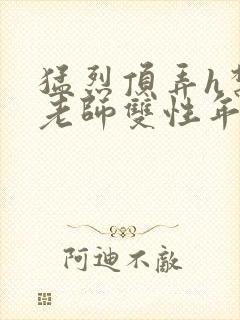 猛烈頂弄h
老師雙性年
阿迪不敵